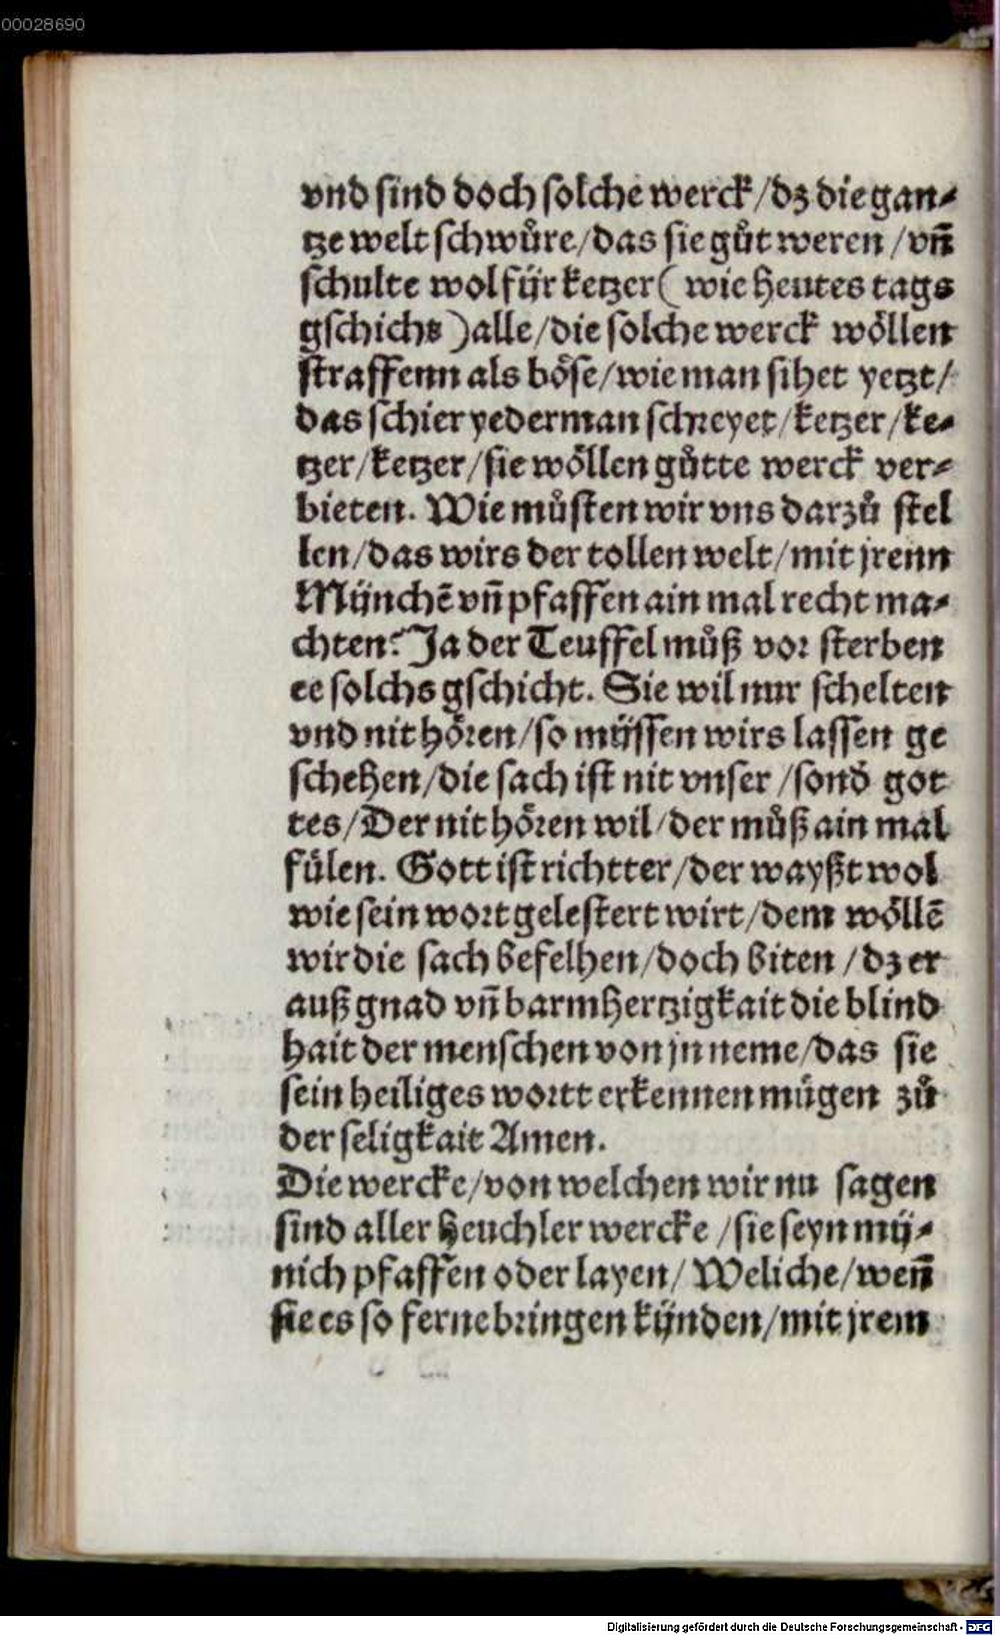 00028690
vnd sind doch solche werck/dz die gan-
tze welt schwůre/das sie gůt weren/vñ
schulte wol für ketzer(wie heutes tags
gschicht)alle/die solche werck wöllen
straffenn als böse/wie man sihet yetzt/
das schier yederman schreyet/ketzer/ke-
tzer/ketzer/sie wöllen gůtte werck ver-
bieten. Wie můsten wir vns darzů stel
len/das wirs der tollen welt/mit jrenn
Münchẽ vñ pfaffen ain mal recht ma-
chten? Ja der Teuffel můß vor sterben
ee solchs gschicht. Sie wil nur schelten
vnd nit hören/so müssen wirs lassen ge
schehen/die sach ist nit vnser/sonđ got
tes/Der nit hören wil/der můß ain mal
fülen. Gott ist richtter/der wayßt wol
wie sein wort gelestert wirt/dem wöllẽ
wir die sach befelhen/doch biten/dz er
auß gnad vñ barmhertzigkait die blind
hait der menschen von jn neme/das sie
sein heiliges wortt erkennen mügen zů
der seligkait Amen.
Die wercke/von welchen wir nu sagen
sind aller heuchler wercke/sie seyn mü-
nich pfaffen oder layen/Weliche/weñ
sie es so ferne bringen künden/mit jrem
Digitalisierung gefördert durch die Deutsche Forschungsgemeinschaft - DFG